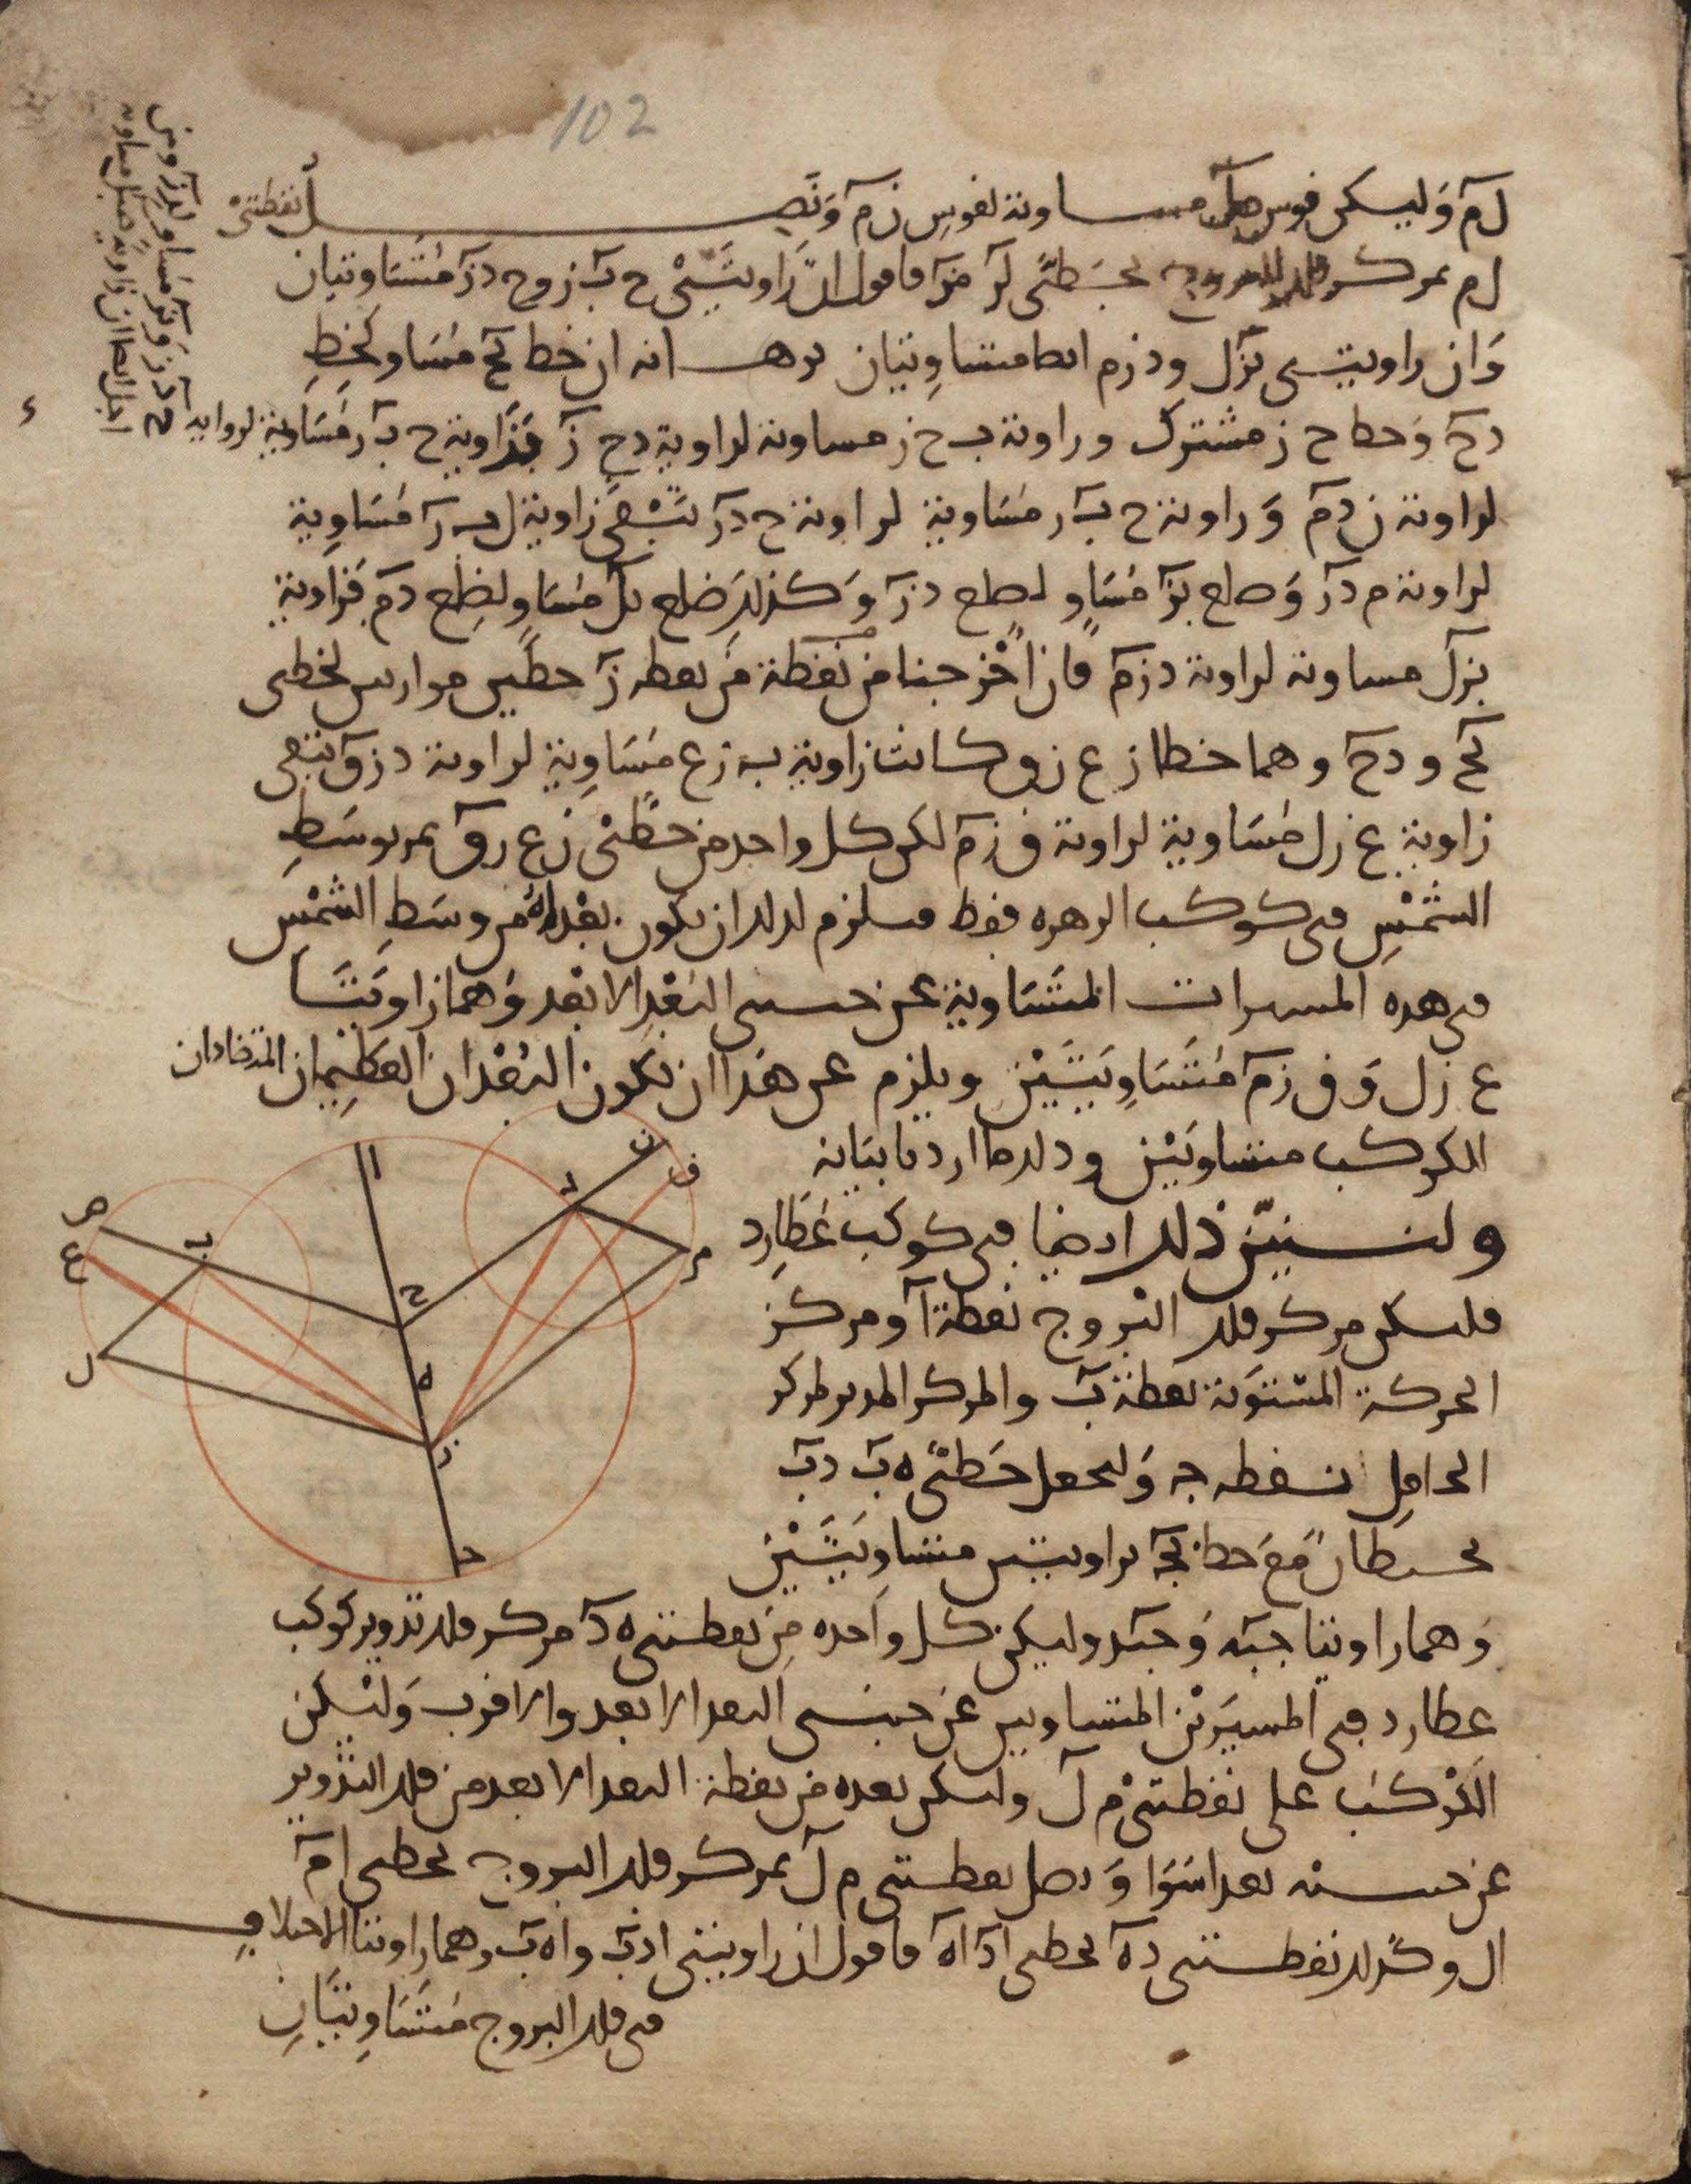 102
ل م وليكن قوس مساوية لقوس ن م ونصل نقطتي
ل م بمركز فلك البروج بخطي ل ز م ز فاقول ان زاويتي ح ب ز و ح د ز متساويتان
وان زاويتي ب ز ل و د ز م ايضا متساويتان برهانه ان خط ب ح مساو لخط
د ح وخط ح ز مشترك وزاوية ب ح ز مساوية لزاوية د ح ز فزاوية ح ب ز مساوية لزاوية
ح د ز و ب ز مساو ل د ز ومن
اجل ايضا ان زاوية مساوية
لزاوية ن د م وزاوية ح ب ز مساوية لزاوية ح د ز تبقى زاوية ل ب ز مساوية
لزاوية م د ز وضلع ب ز مساو لضلع د ز وكذلك ضلع ب ل مساو لضلع د م فزاوية
ب ز ل مساوية لزاوية د ز م فان اخرجنا من نقطة ز خطين موازيين لخطي
ب ح و د ح وهما خطا ز ع ز ق كانت زاوية ب ز ع مساوية لزاوية د ز ق تبقى
زاوية ع ز ل مساوية لزاوية ق ز م لكن كل واحد من خطي ز ع ز ق يمر بوسط
الشمس في كوكب الزهرة فقط فيلزم لذلك ان يكون بعداه من وسط الشمس
في هذه المسيرات المتساوية عن جنبتي البعد الابعد وهما زاويتا
ع ز ل و ق ز م متساويتين ويلزم عن هذا ان تكون البعدان العظيمان المتضادان
للكوكب متساويين وذلك ما اردنا بيانه
ولنبين ذلك ايضا في كوكب عطارد
فليكن مركز فلك البروج نقطة ا ومركز
الحركة المستوية نقطة ب والمركز المدير لمركز
الحامل نقطة ج ولنجعل خطي ه ب د ب
يحيطان مع خط ب ج بزاويتين متساويتين
وهما زاويتا ج ب ه و ج ب د وليكن كل واحدة من نقطتي ه د مركز فلك تدوير كوكب
عطارد في المسيرين المتساويين عن جنبتي البعد الابعد والاقرب وليكن
الكوكب على نقطتي م ل وليكن بعده من نقطة البعد الابعد من فلك التدوير
عن جنبتيه بعدا سوا ونصل نقطتي م ل بمركز فلك البروج بخطي ا م
ا ل وكذلك نقطتي د ه بخطي ا د ا ه فاقول ان زاويتي ا د ب و ا ه ب وهما زاويتا الاختلاف
في فلك البروج متساويتان
ا
ن
ق
د
ص
ع
ب
ح
م
ل
ه
ز
ج